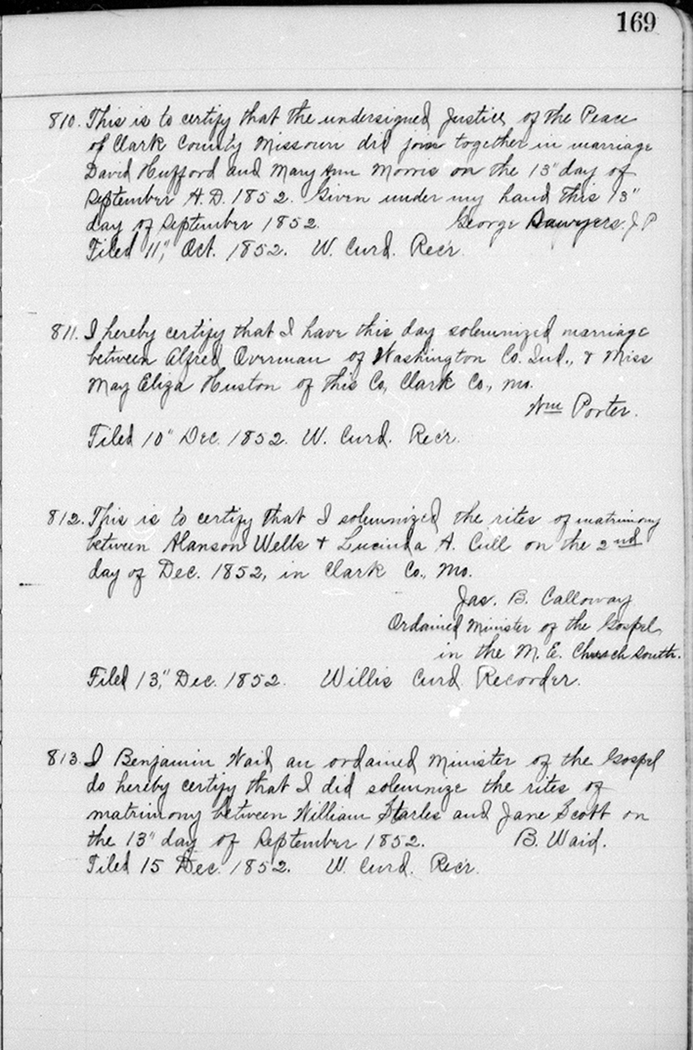 169
810. This is to certify that the undersigned Justice of the Peace
of Clark County Missouri did join together in marriage
David Hufford and Mary Ann Morris on the 13" day of
September A.D. 1852. Given under my hand this 13"
day of September 1852. George Sawyers. J.P
Filed 11," Oct. 1852. W. Curd. Rec'r.
811. I hereby certify that I have this day solemnized marriage
between Alfred Overman of Washington Co. Ind., & Miss
May Eliza Huston of this Co, Clark Co., Mo.
Wm Porter.
Filed 10" Dec. 1852. W. Curd. Rec'r.
812. This is to certify that I solemnized the rites of matrimony
between Alanson Wells + Lucinda A. Cull on the 2nd
day of Dec. 1852, in Clark Co., Mo.
Jas. B. Calloway
Ordained Minister of the Gospel
in the M. E. Church South.
Filed 13," Dec. 1852. Willis Curd Recorder.
813. I Benjamin Waid an ordained Minister of the Gospel
do hereby certify that I did solemnize the rites of
matrimony between William Starles and Jane Scott on
the 13" day of September 1852. B. Waid.
Filed 15 Dec. 1852. W. Curd. Rec'r.